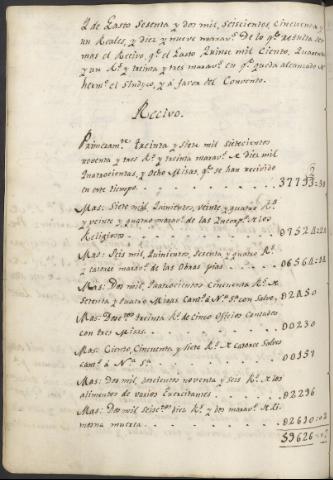 Y de Gasto Sesenta y dos mil, Seiscientos, Cincuenta y
un Reales, y diez y nueve marav.s De lo q.e resulta ser
mas el Recivo, q.e el Gasto Quince mil Ciento, Quarenta
y un R.s y treinta y tres marav.s en q.e queda alcanzado el
herm.o el Sindyco, y á favor del Convento.
Recivo.
Primeram.te treinta y Siete mil Setecientos
noventa y tres R.s y treinta marav.s de diez mil
Quatrocientas, y ocho Misas, q.e se han recivido
en este tiempo 37793
Mas: Siete mil, Quinientos, veinte y quatro R.s
y veinte y quatro marav.s de las de los
Religiosos 07524=24
Mas: Seis mil, Quinientos, Sesenta y quatro R.s
y catorce marav.s de las Obras pias 06564=14
Mas: Dos mil, Quatrocientos Cincuenta R.s de
Setenta y Misas Cant.s á N.a S.a con Salve, 02450
Mas: Doscientos, treinta R.s de cinco Oficios Cantados
con tres Misas 00230
Mas: Ciento, Cincuenta y Siete R.s de catorce Salves
cant.s á N.a S.a 00157
Mas: Dos mil, doscientos noventa y seis R.s de los
alimentos de varios Exercitantes 02296
Mas: Dos mil Seisc.tos diez R.s y dos marav.s de Li-
mosna 02610=02
59626